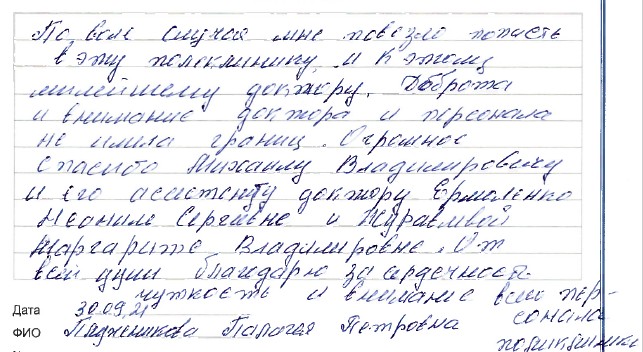 По воле случая мне повезло попасть
в эту поликлинику и к этому
милейшему доктору. Доброта
и внимание доктора и персонала
не имела границ. Огромное
спасибо Михаилу Владимировичу
и его ассистенту доктору Ермоленко
Неониле Сергеевне и Журавлёвой
Маргарите Владимировне. От
всей души благодарю за сердечность
чуткость и внимание всему пер-
сонала
поликлиники
Дата 30.09.21
ФИО Палагея Петровна